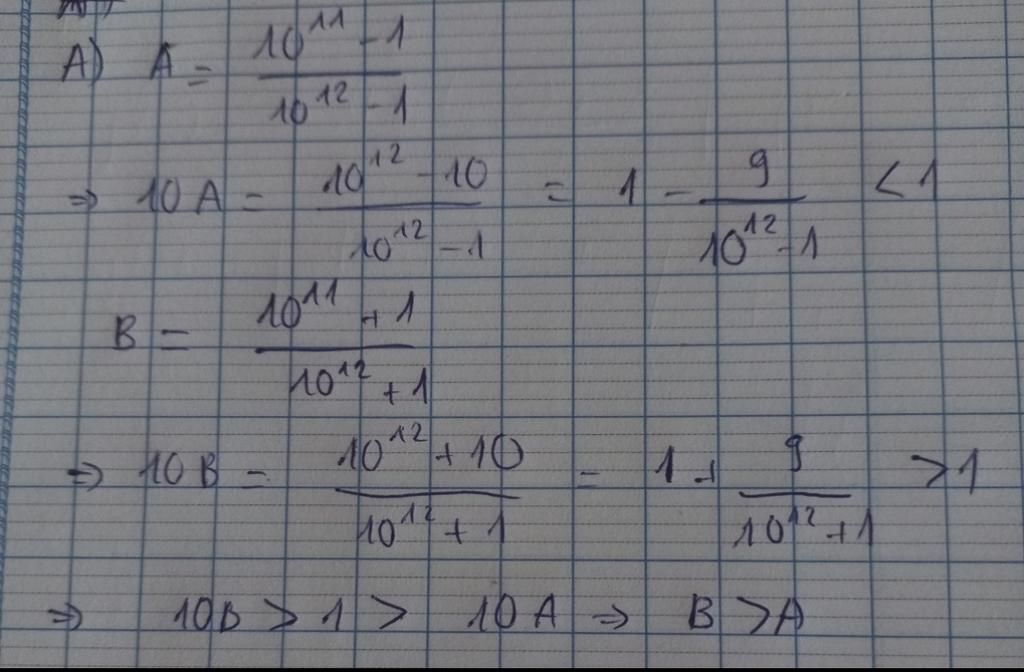 A) A = (10^11 - 1)/(10^12 - 1)
⇒ 10A = (10^12 - 10)/(10^12 - 1) = 1 - 9/(10^12 - 1) < 1
B = (10^11 + 1)/(10^12 + 1)
⇒ 10B = (10^12 + 10)/(10^12 + 1) = 1 + 9/(10^12 + 1) > 1
⇒ 10B > 1 > 10A ⇒ B > A